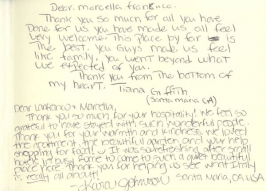 Dear, marcella francesco.
Thank you so much for all you have
Done for us you have made us all feel
very welcome! This place by far is
The best. you Guys made us feel
like family. you went beyond what
we expected of you.
Thank you from the bottom of
my heart. Tiana Griffith
(Santa maria CA)
Dear Francesco & Marcella,
Thank you so much for your hospitality! We feel so
grateful to have stayed with such wonderful people.
Thank you for your warmth and kindness. We loved
the apartment, the beautiful garden, and your help
It was so refreshing after
Rome to come to such a quiet beautiful
place here. Thank you for helping us see what Italy
is really all about!!
Santa Maria, CA, USA